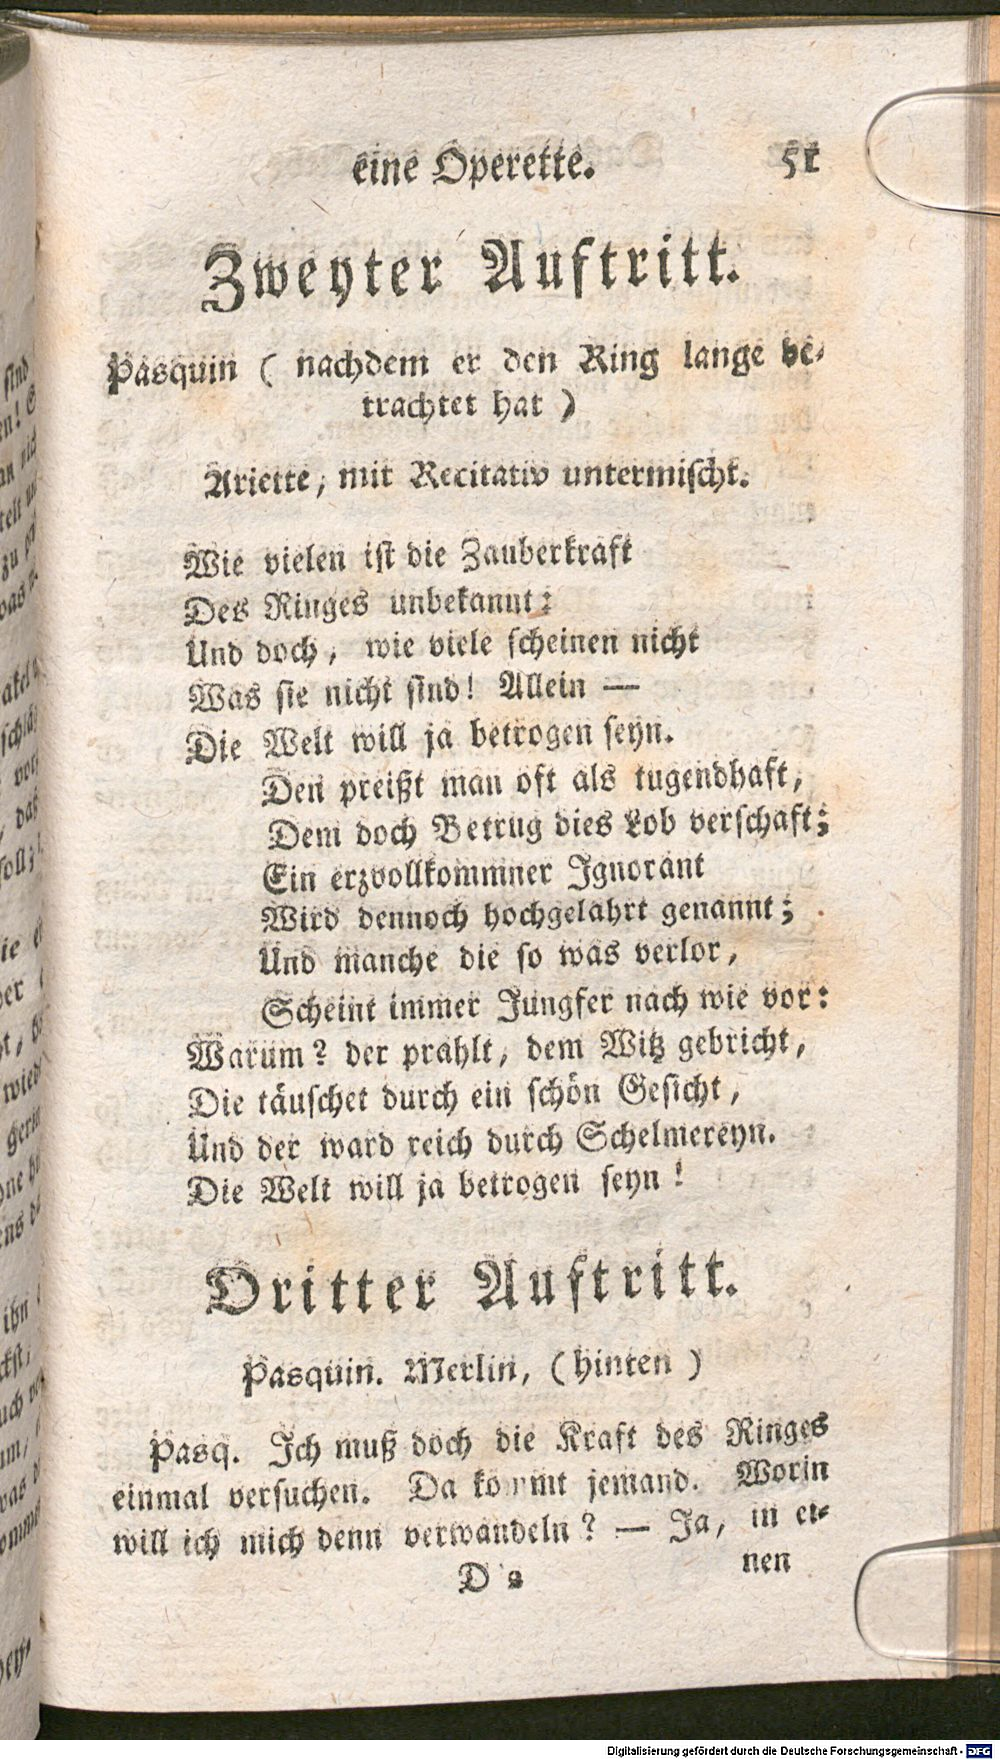 eine Operette. 51
Zweyter Auftritt.
Pasquin ( nachdem er den Ring lange be-
trachtet hat )
Ariette, mit Recitativ untermischt.
Wie vielen ist die Zauberkraft
Des Ringes unbekannt:
Und doch, wie viele scheinen nicht
Was sie nicht sind! Allein —
Die Welt will ja betrogen seyn.
Den preißt man oft als tugendhaft,
Dem doch Betrug dies Lob verschaft;
Ein erzvollkommner Ignorant
Wird dennoch hochgelahrt genannt;
Und manche die so was verlor,
Scheint immer Jungfer nach wie vor:
Warum? der prahlt, dem Witz gebricht,
Die täuschet durch ein schön Gesicht,
Und der ward reich durch Schelmereyn.
Die Welt will ja betrogen seyn!
Dritter Auftritt.
Pasquin. Merlin, (hinten )
Pasq. Ich muß doch die Kraft des Ringes
einmal versuchen. Da kommt jemand. Worin
will ich mich denn verwandeln? — Ja, in ei-
D 2 nen
Digitalisierung gefördert durch die Deutsche Forschungsgemeinschaft - DFG